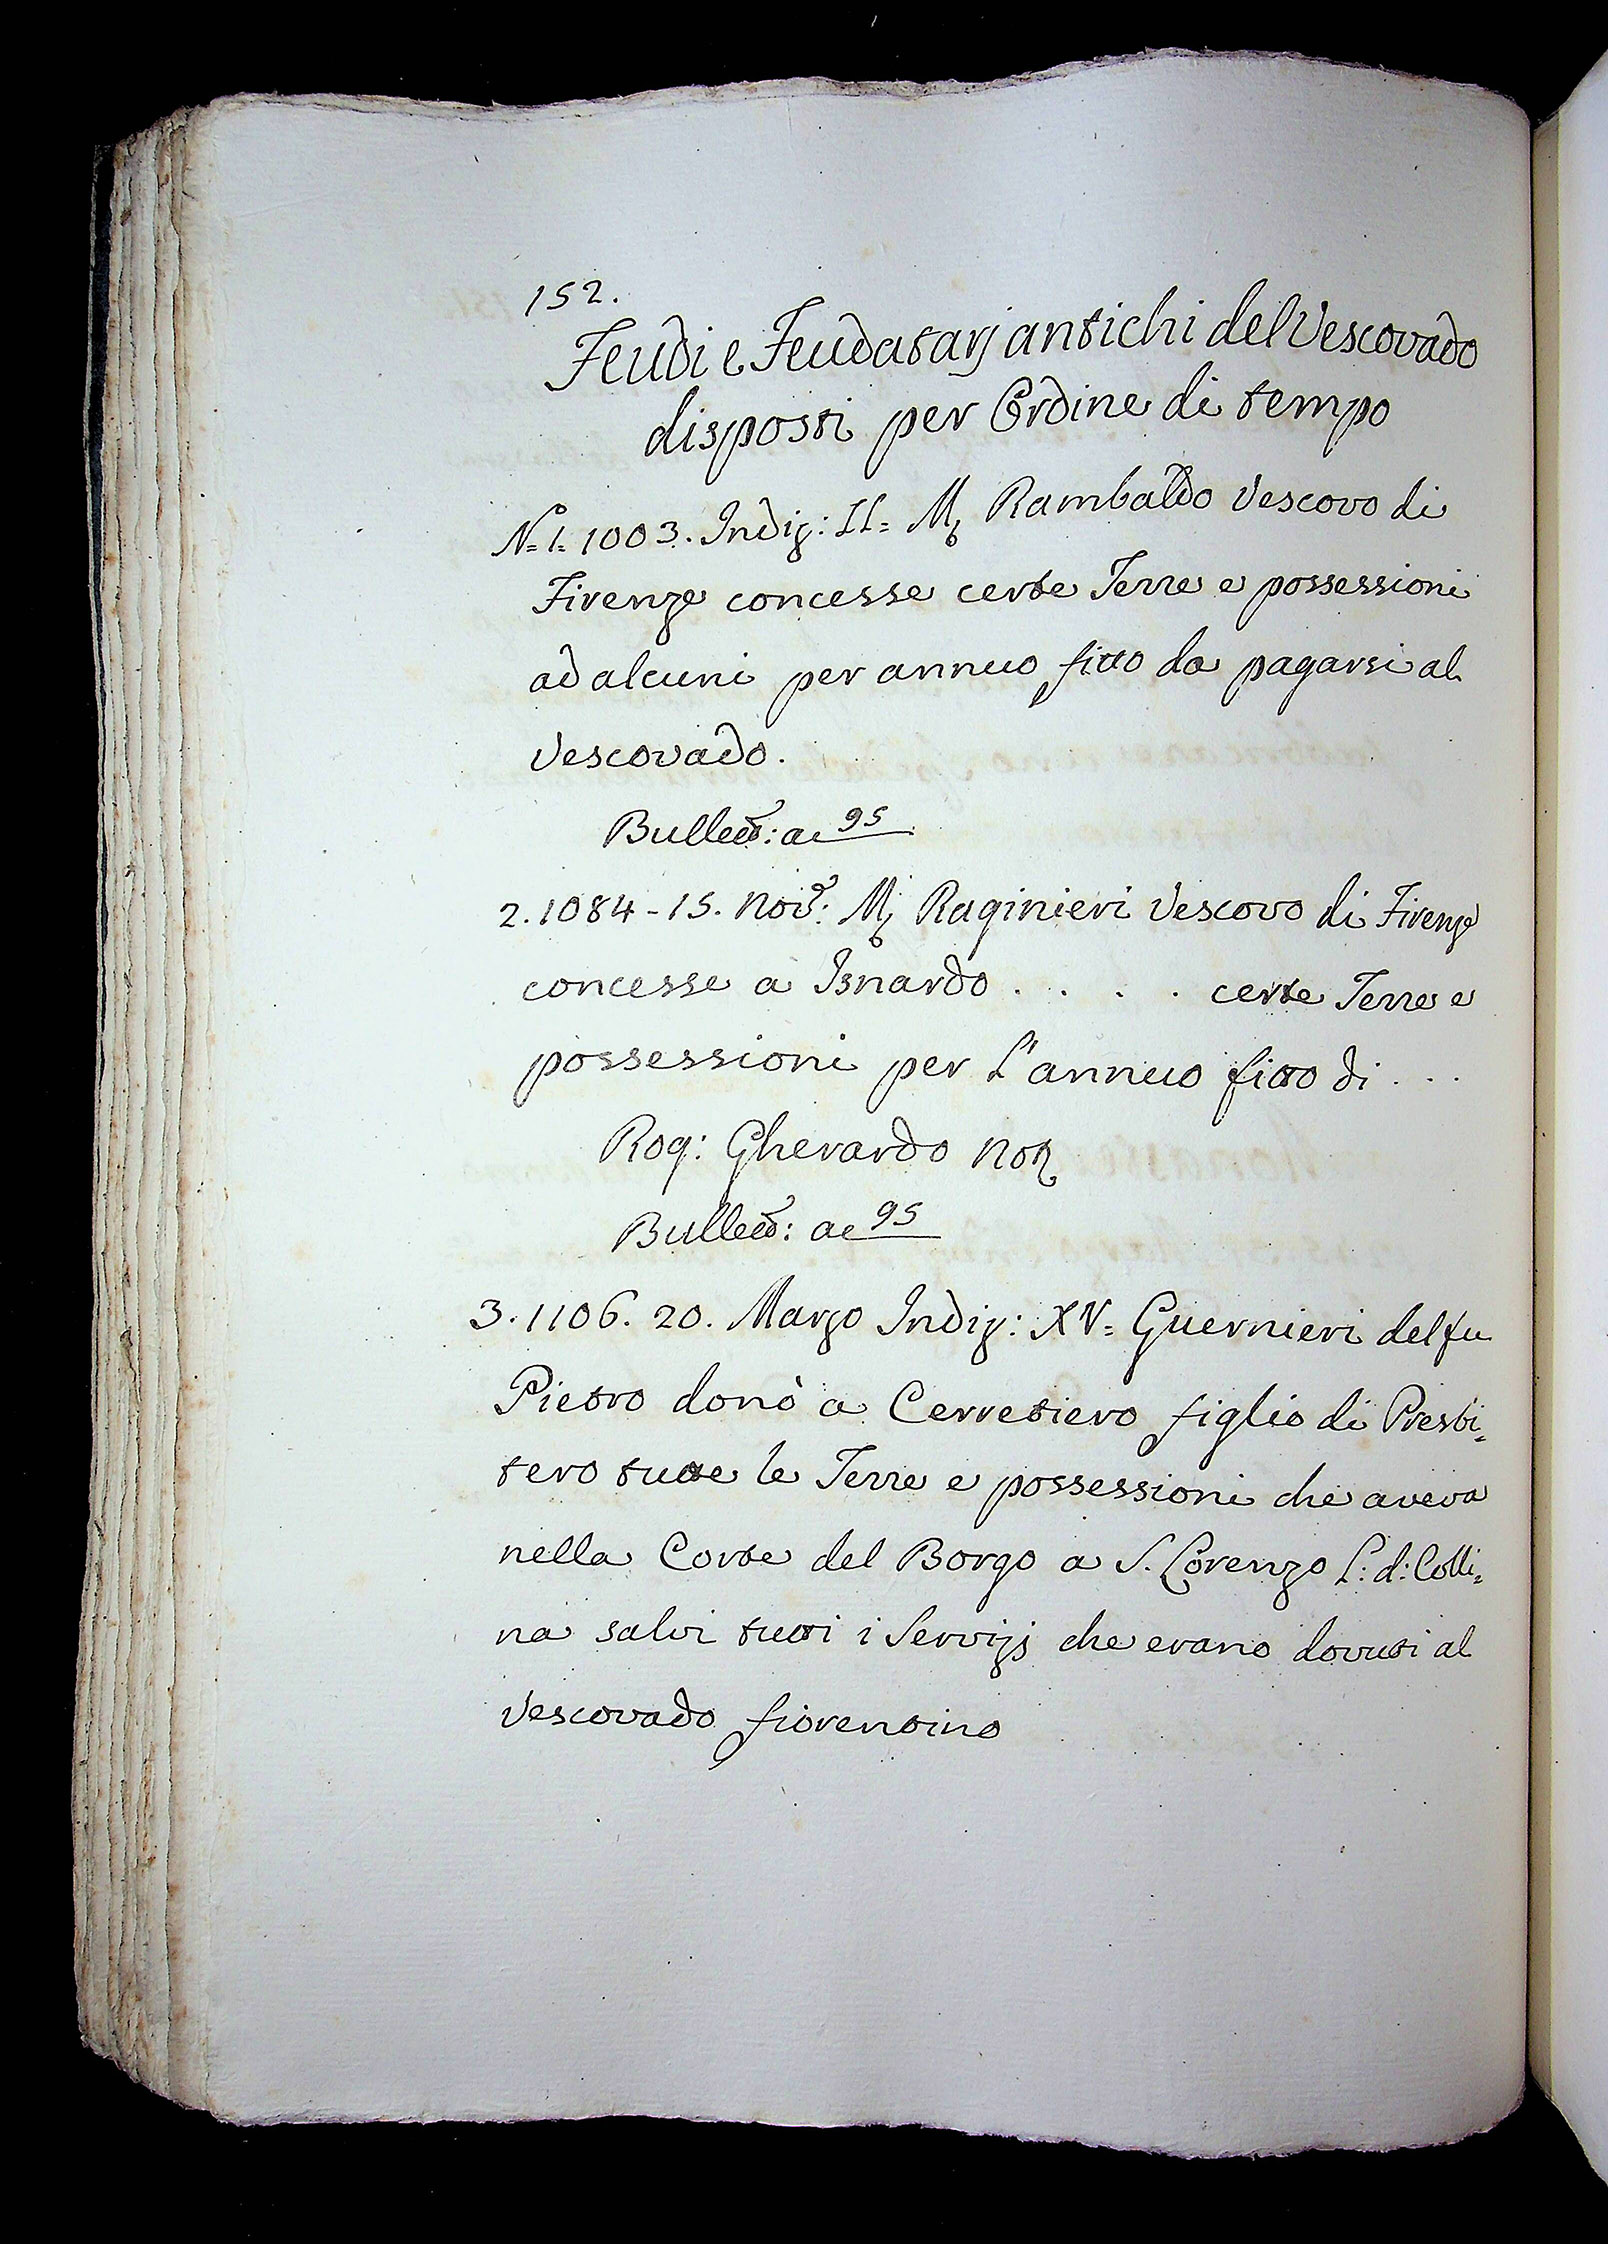 152.
Feudi e Feudatarj antichi del Vescovado
disposti per Ordine di tempo
N. 1. 1003. Indiz: II= M. Rambaldo Vescovo di
Firenze concesse certe Terre e possessioni
ad alcuni per annuo fitto da pagarsi al
Vescovado.
Bullett: a 95
2. 1084 - 15. Nove: M. Raginieri Vescovo di Firenze
concesse a Isnardo . . . . certe Terre e
possessioni per L'annuo fitto di . . .
Rog: Gherardo Not
Bullett: a 95
3. 1106. 20. Marzo Indiz: XV= Guernieri del fu
Pietro donò a Cerretiero figlio di Presbi=
tero tutte le Terre e possessioni che aveva
nella Corte del Borgo a S. Lorenzo L: d: Colli=
na salvi tutti i Servizj che erano dovuti al
Vescovado fiorentino